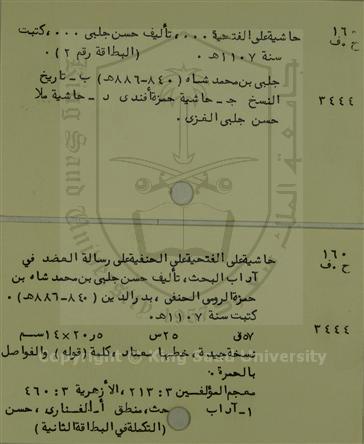 ١٦٠ حاشية على الفتحية ٠٠٠، تأليف حسن جلبى ٠٠٠، كتبت
ح ٠ ف سنة ١١٠٧هـ ٠ (البطاقة رقم ٢) ٠
جلبى بن محمد شاه (٨٤٠-٨٨٦هـ) ب - تاريخ
٣٤٤٤ النسخ جـ - حاشية حمزة أفندى د - حاشية ملا
حسن جلبى الفنرى ٠
١٦٠ حاشية على الفتحية على الحنفية على رسالة العضد في
ح ٠ ف آداب البحث، تأليف حسن جلبى بن محمد شاه بن
حمزة الرومى الحنفى، بدر الدين (٨٤٠-٨٨٦هـ) ٠
كتبت سنة ١١٠٧هـ ٠
٣٤٤٤ ٥٧ق ٢٥س ٢٠٫٥×١٤سم
نسخة جيدة، خطها معتاد، كلمة (قوله) والفواصل
بالحمرة ٠
معجم المؤلفين ٣ : ٢١٣، الأزهرية ٣ : ٤٦٠
١- آداب البحث، منطق أ- الفنارى، حسن
(التكملة في البطاقة الثانية)
copyright © King Saud University